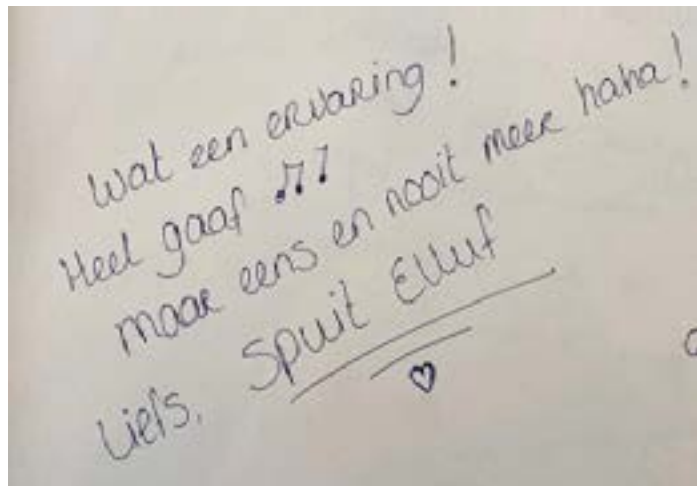 Wat een ervaring!
Heel gaaf ♫♪
maar eens en nooit meer haha!
Liefs, Spuit Elluf
♡